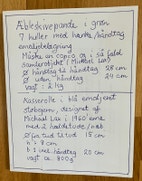 Æbleskivepande i grøn
7 huller med hanke/håndtag
emaljebelægning
Måske en copco og i så fald
samlerobjekt (Michael Lax)
Ø håndtag til håndtag 28 cm
Ø uden håndtag 24 cm
vægt: 2 kg
Kasserolle i blå emaljeret
støbejern, designet af
Michael Lax i 1960'erne
med 2 hældetude/næb
Ø fra tud til tud 18 cm
h: 8 cm
b: incl håndtag 20 cm
vægt ca. 800 g